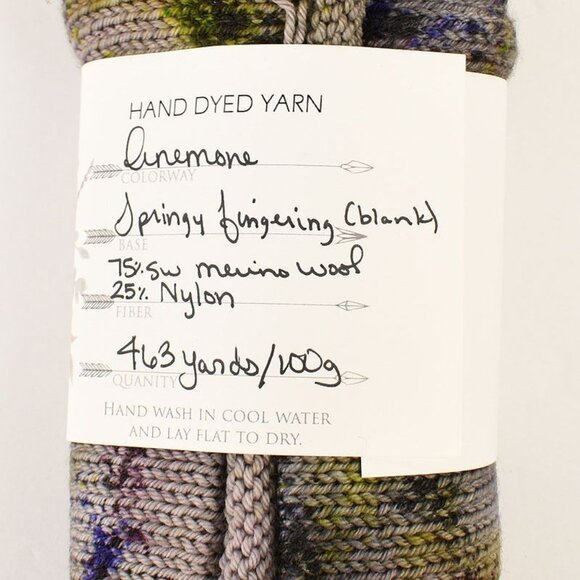 HAND DYED YARN
Anemone
COLORWAY
Springy fingering (blank)
BASE
75% SW merino wool
25% Nylon
FIBER
463 yards/100g
QUANITY
HAND WASH IN COOL WATER
AND LAY FLAT TO DRY.